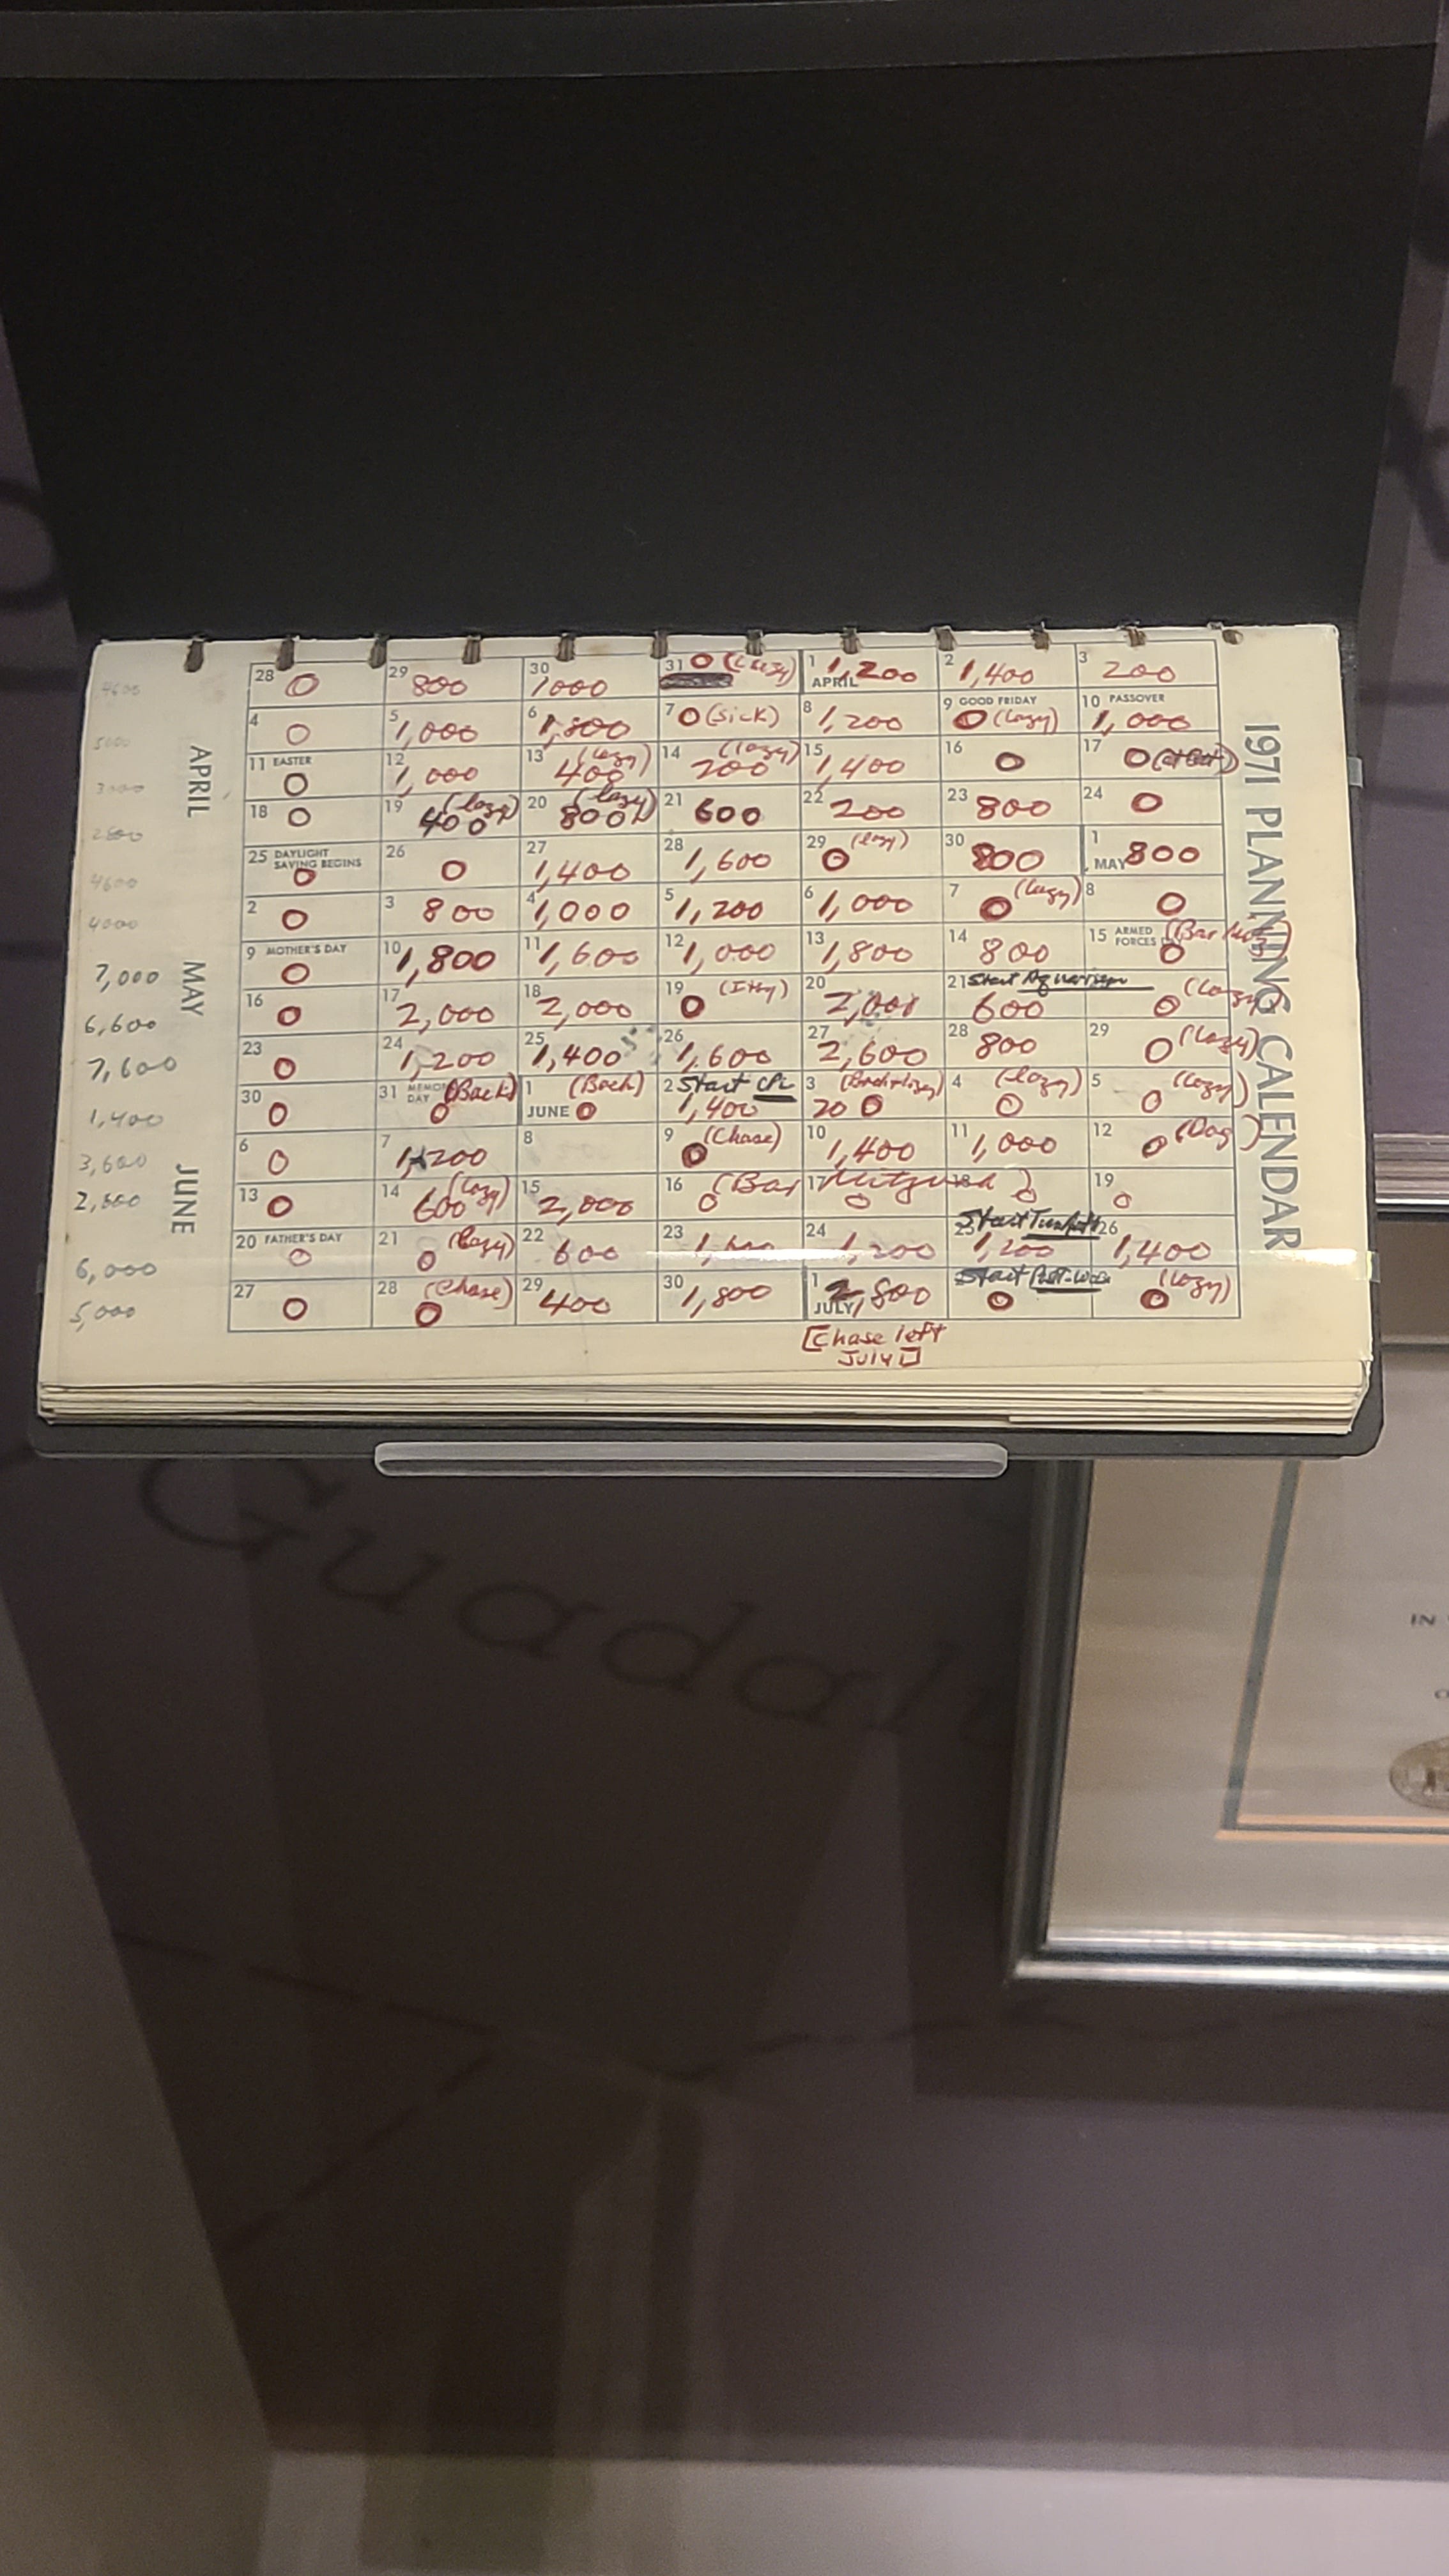 1971 PLANNING CALENDAR
APRIL
MAY
JUNE
4600 28 0 29 800 30 1000 31 0 (Lazy) 1 APRIL 1,200 2 1,400 3 200
5000 4 0 5 1,000 6 1,800 7 0 (sick) 8 1,200 9 GOOD FRIDAY 0 (Lazy) 10 PASSOVER 1,000
3000 11 EASTER 0 12 1,000 13 (lazy) 400 14 (lazy) 200 15 1,400 16 0 17 0
2800 18 0 19 (lazy) 400 20 (lazy) 800 21 600 22 200 23 800 24 0
4600 25 DAYLIGHT SAVING BEGINS 0 26 0 27 1,400 28 1,600 29 (lazy) 0 30 800 1 MAY 800
4000 2 0 3 800 4 1,000 5 1,200 6 1,000 7 (Lazy) 0 8 0
7,000 9 MOTHER'S DAY 0 10 1,800 11 1,600 12 1,000 13 1,800 14 800 15 ARMED FORCES 0
6,600 16 0 17 2,000 18 2,000 19 0 20 21 Start Aquarium 600 (Lazy) 0
7,600 23 0 24 1,200 25 1,400 26 1,600 27 2,600 28 800 29 0 (Lazy)
1,400 30 0 31 DAY (Back) 0 1 JUNE (Back) 0 2 Start 1,400 3 0 4 (Lazy) 0 5 (Lazy) 0
3,600 6 0 7 1,200 8 9 (Chase) 0 10 1,400 11 1,000 12 (Dog) 0
13 0 14 (Lazy) 600 15 2,000 16 (Bar 0 17 Mitzvah 0 18 ) 0 19 0
6,000 20 FATHER'S DAY 0 21 (Lazy) 0 22 600 23 24 1,200 25 Start 1,200 26 1,400
5,000 27 0 28 (Chase) 0 29 400 30 1,800 1 JULY 2,800 Start 0 (Lazy) 0
[Chase left
July]
Guadal
IN